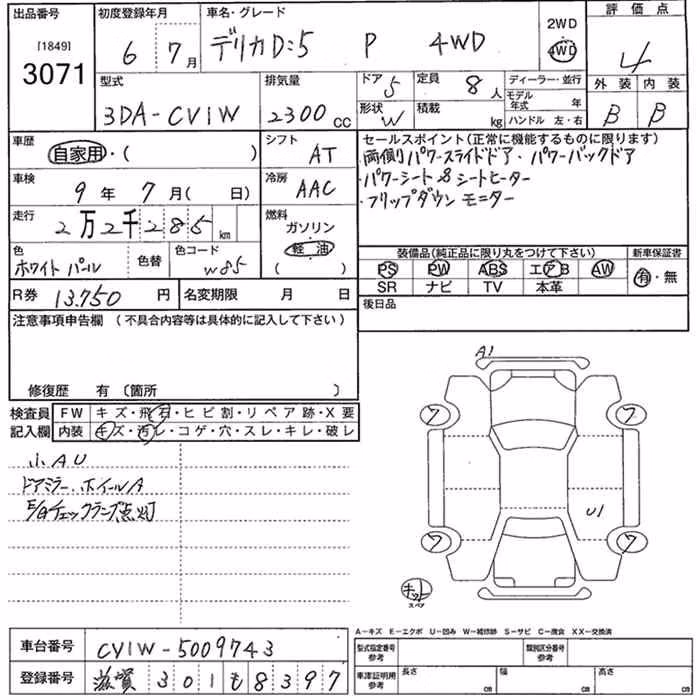 出品番号 初度登録年月 車名・グレード 2WD 評価点
[1849] 3071 6 7月 デリカD:5 P 4WD 4WD 4
型式 排気量 ドア 5 定員 8人 ディーラー・並行 外装 内装
3DA-CV1W 2300cc 形状 W 積載 kg モデル年式 年 ハンドル 左・右 B B
車歴 シフト セールスポイント(正常に機能するものに限ります)
自家用・( ) AT 両側パワースライドドア・パワーバックドア
車検 冷房 ・パワーシート & シートヒーター
9年 7月( 日) AAC ・フリップダウン モニター
走行 燃料
2万2千285km ガソリン
軽油
( )
色 色替 色コード 装備品(純正品に限り丸をつけて下さい) 新車保証書
ホワイト パール W85 PS PW ABS エアB AW 有・無
R券 13.750円 名変期限 月 日 SR ナビ TV 本革
注意事項申告欄(不具合内容等は具体的に記入して下さい) 後日品
修復歴 有(箇所 )
検査員 FW キズ・飛石・ヒビ割・リペア跡・X要
記入欄 内装 キズ・汚レ・コゲ・穴・スレ・キレ・破レ
A1
7 7
小AU
ドアミラー.ホイールA
E/Gチェックランプ点灯
U1
7 7
キット
スペア
A-キズ E-エクボ U-凹み W-補修跡 S-サビ C-腐食 XX-交換済
車台番号 CV1W-5009743 型式指定番号 参考 類別区分番号 参考
登録番号 滋賀 301 も 8397 車庫証明用 参考 長さ cm 幅 cm 高さ cm